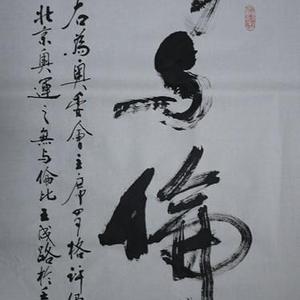 与倫
右為奧委會主席罗格評
北京奧運之無与倫比王成路於